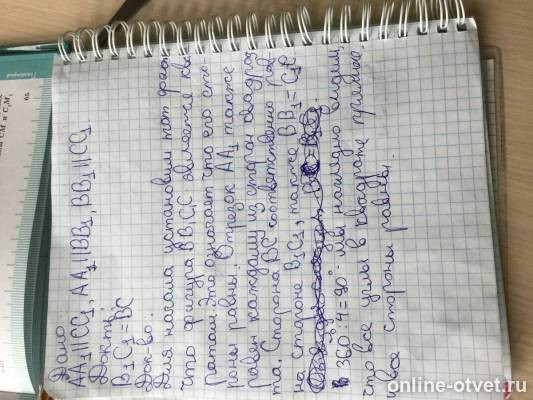 Дано:
AA₁||CC₁, AA₁||BB₁, BB₁||CC₁.
Док-ть:
B₁C₁=BC
Док-во:
Для начала установим тот факт
что фигура BB₁C₁C является ква-
ратом. Это означает что его сто-
роны равны. Отрезок AA₁ также
равен каждому из сторон квадра
та. Сторона BC соответственно рав-
на стороне B₁C₁, также BB₁=C₁C
360:4=90° - мы наглядно видим,
что все углы в квадрате прямые,
стороны равны.
65
СМ и С₁М₁
online-otvet.ru